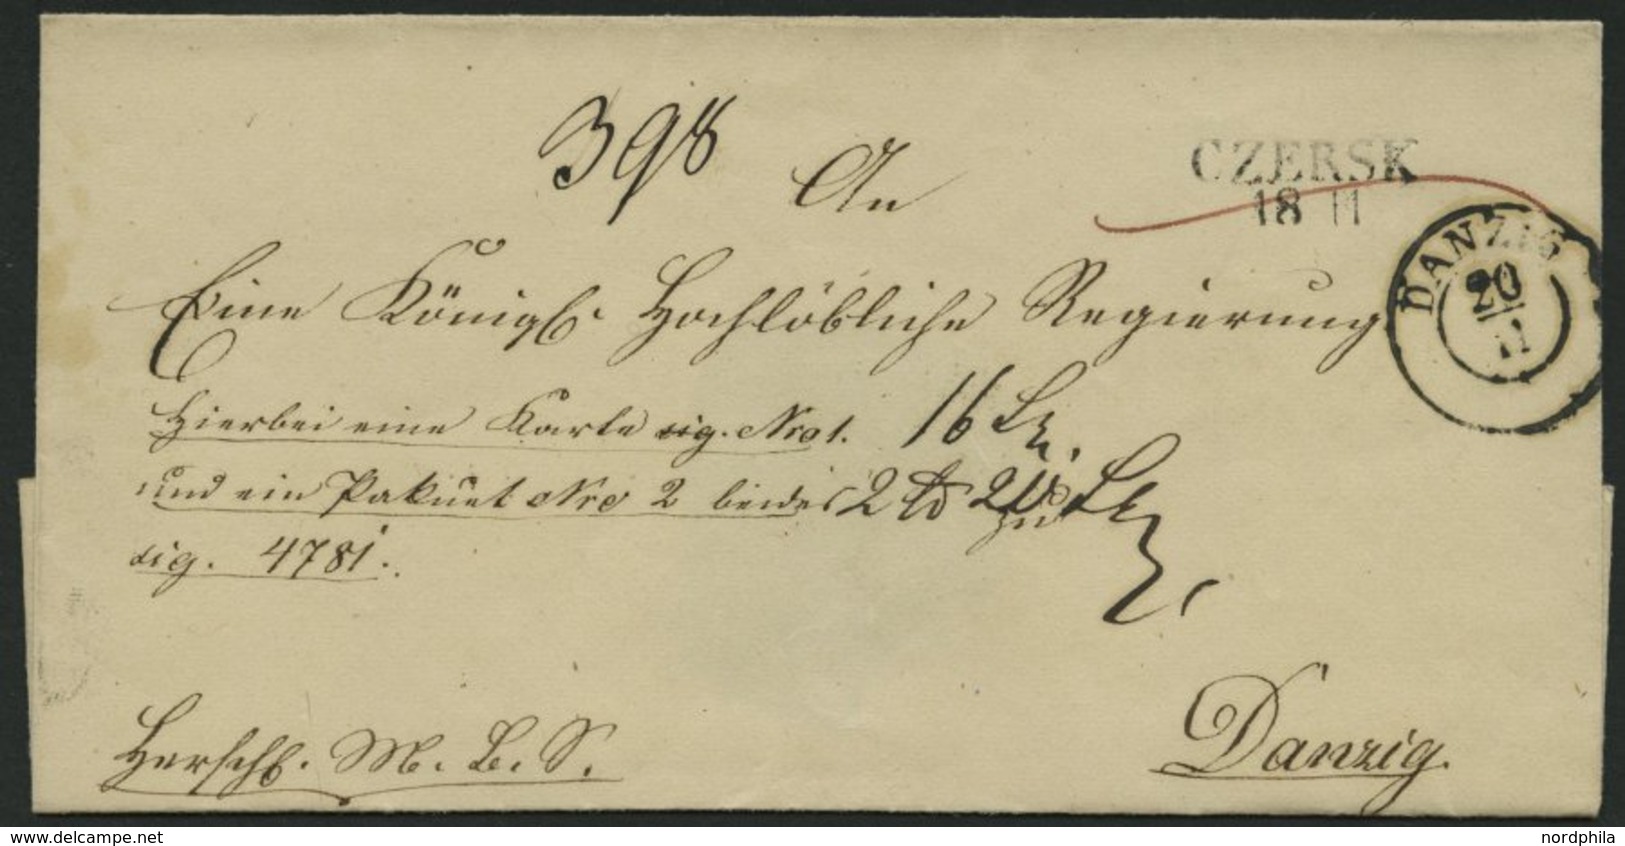 398
An
CZERSK
18 11
DANZIG
20
11
Eine Königl. Hochlöbliche Regierung
Hierbei eine Karte sig. Nro 1. 16 Lth.
und ein Pakuet Nro 2 beides 2 20 Lth.
sig. 4781.
Herrschl. M. L. S.
Danzig.
www.delcampe.net
nordphila